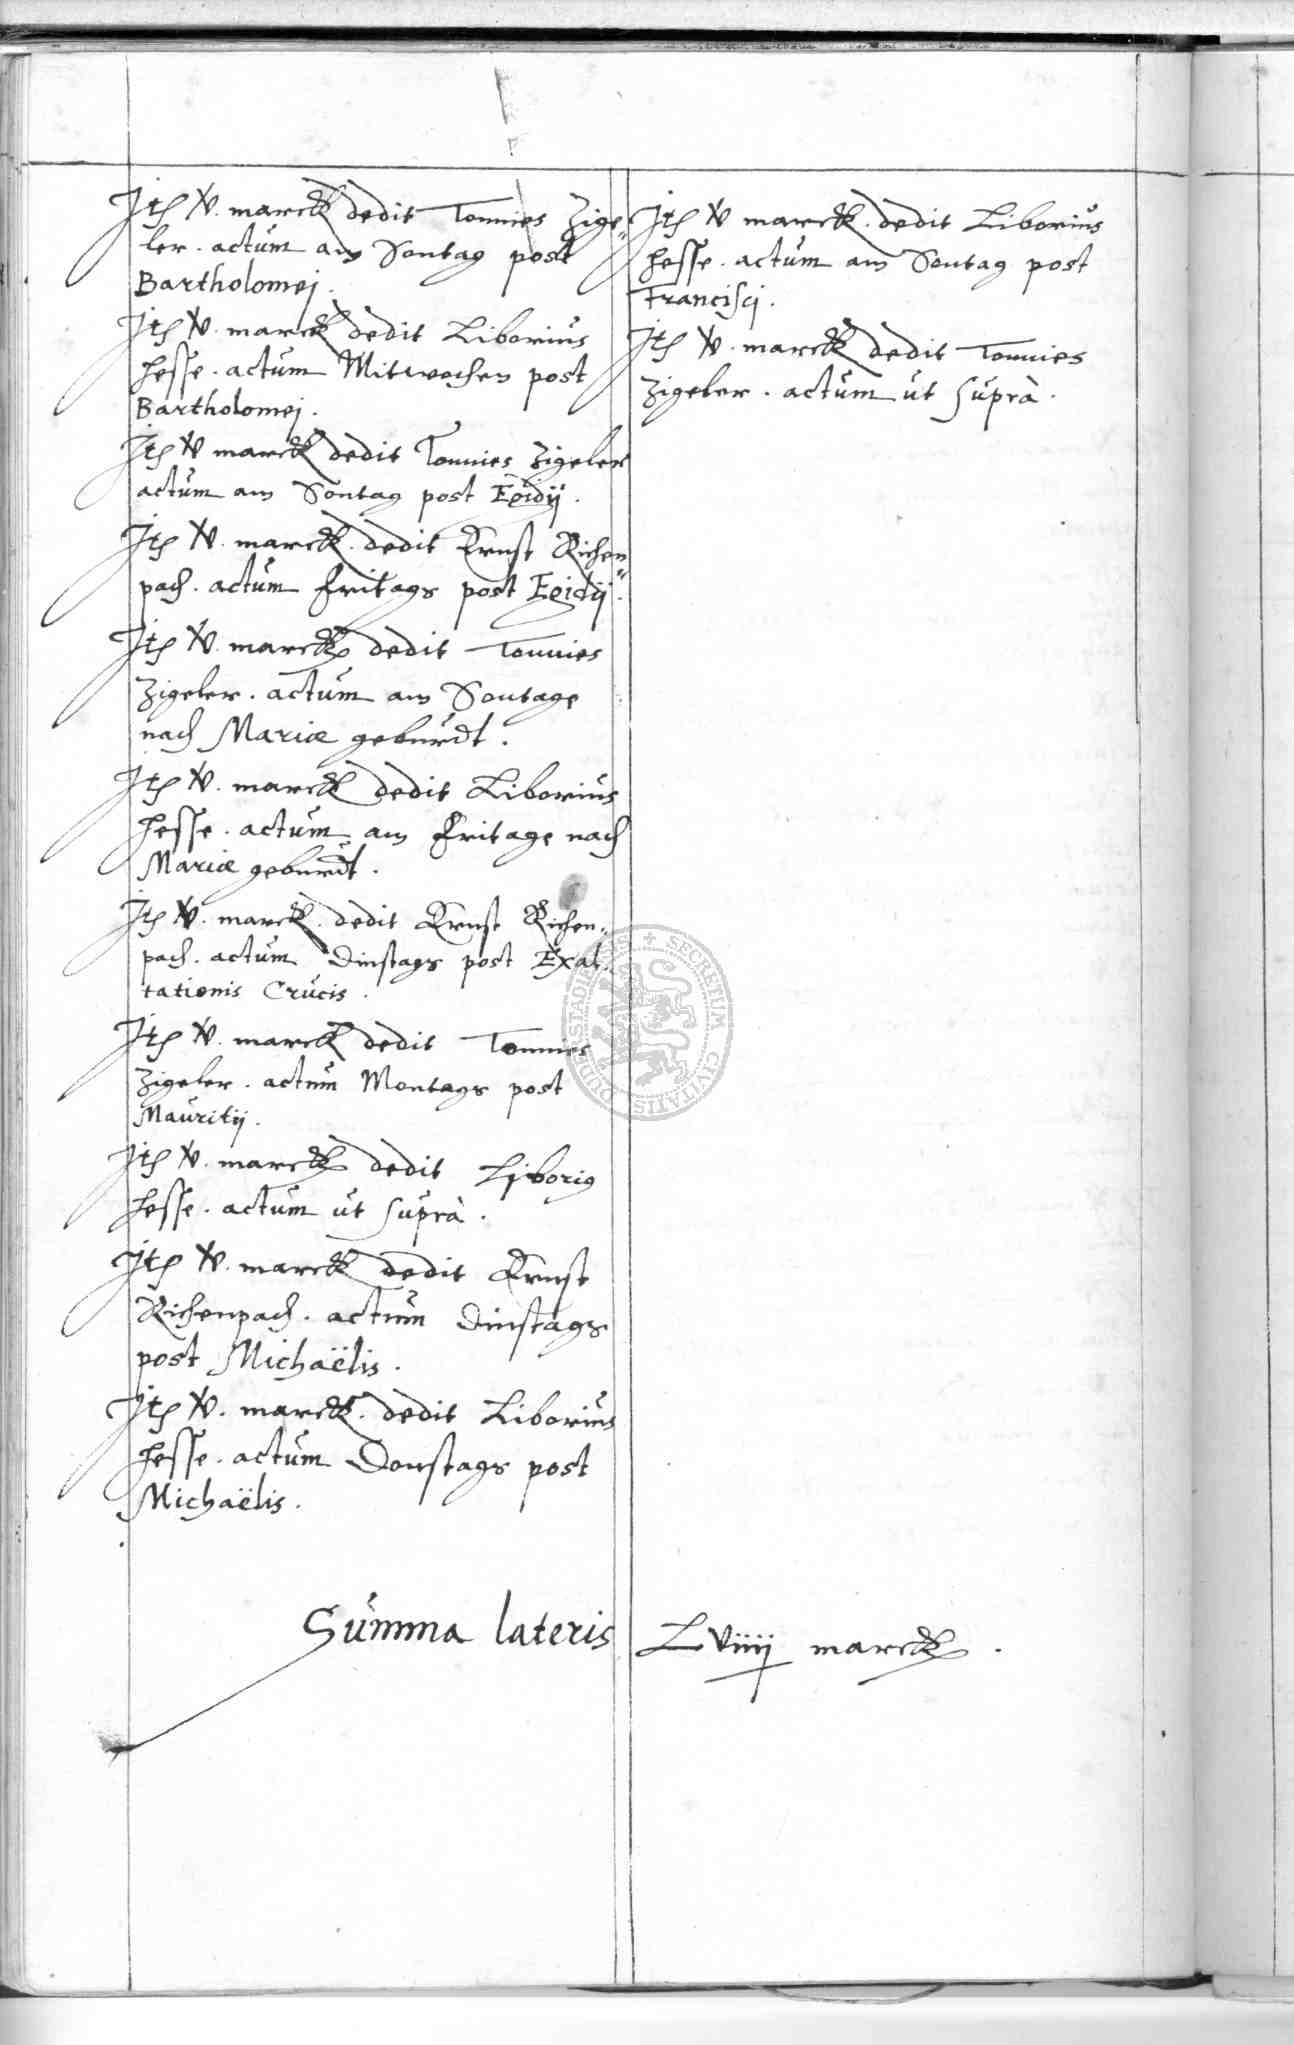 Jtē v̶. marck dedit Tonnies Zige„
ler. actum am Sontag post
Bartholomej.
Jtē v̶. marck dedit Liborius
Hesse. actum Mitwochen post
Bartholomej.
Jtē v̶ marck dedit Tonnies Zigeler
actum am Sontag post Egidij.
Jtē v̶. marck. dedit Ernst Richen„
pach. actum fritags post Egidij.
Jtē v̶. marck dedit Tonnies
Zigeler. actum am Sontage
nach Mariæ geburdt.
Jtē v̶. marck dedit Liborius
Hesse. actum am Fritage nach
Mariæ geburdt.
Jtē v̶. marck. dedit Ernst Richen„
pach. actum Dinstags post Exal„
tationis Crucis.
Jtē v̶. marck dedit Tonnies
Zigeler. actum Montags post
Mauritij.
Jtē v̶. marck dedit Liborig
Hesse. actum ut suprà.
Jtē v̶. marck dedit Ernst
Richenpach. actum Dinstags
post Michaëlis.
Jtē v̶. marck. dedit Liborius
Hesse. actum Donstags post
Michaëlis.
Jtē v̶ marck. dedit Liborius
Hesse. actum am Sontag post
Francisci.
Jtē v̶. marck dedit Tonnies
Zigeler. actum ut suprà.
Summa lateris Lviiij marck.
SECRETUM CIVITATIS DUDERSTADIENSIS